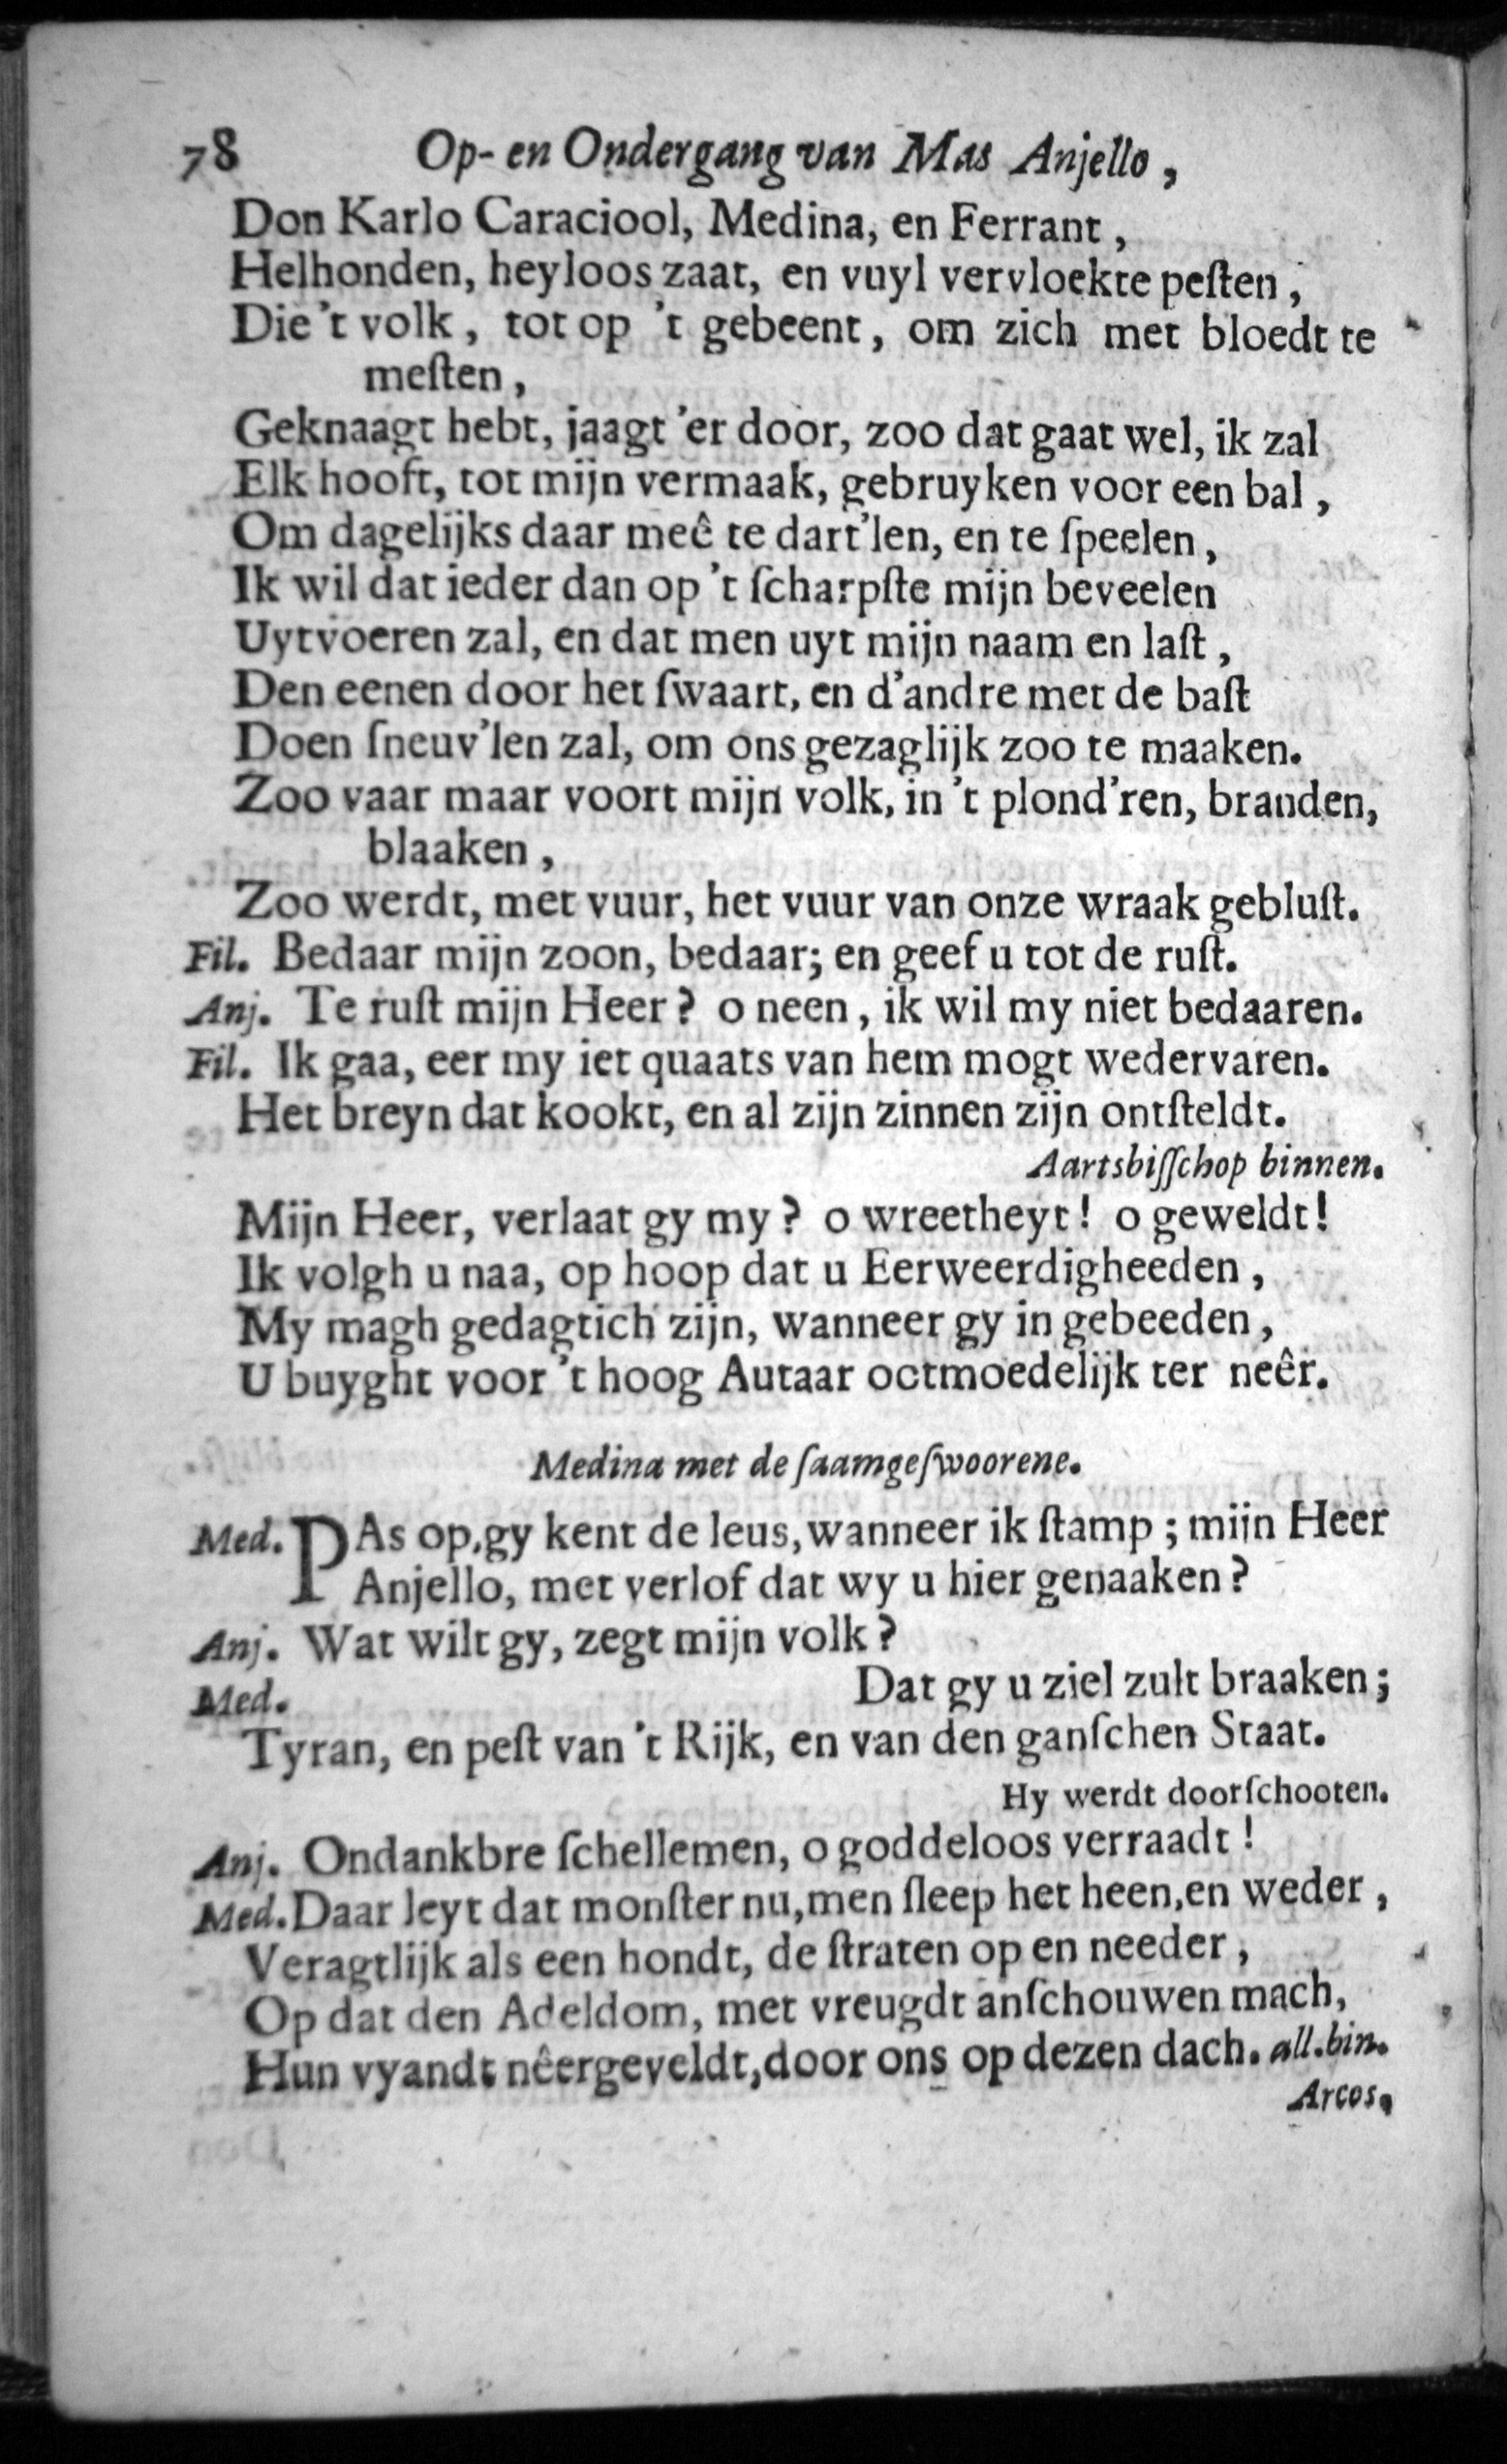 78 Op- en Ondergang van Mas Anjello,
Don Karlo Caraciool, Medina, en Ferrant,
Helhonden, heyloos zaat, en vuyl vervloekte peſten,
Die 't volk, tot op 't gebeent, om zich met bloedt te
meſten,
Geknaagt hebt, jaagt 'er door, zoo dat gaat wel, ik zal
Elk hooft, tot mijn vermaak, gebruyken voor een bal,
Om dagelijks daar meê te dart'len, en te ſpeelen,
Ik wil dat ieder dan op 't ſcharpſte mijn beveelen
Uytvoeren zal, en dat men uyt mijn naam en laſt,
Den eenen door het ſwaart, en d'andre met de baſt
Doen ſneuv'len zal, om ons gezaglijk zoo te maaken.
Zoo vaar maar voort mijn volk, in 't plond'ren, branden,
blaaken,
Zoo werdt, met vuur, het vuur van onze wraak gebluſt.
Fil. Bedaar mijn zoon, bedaar; en geef u tot de ruſt.
Anj. Te ruſt mijn Heer? o neen, ik wil my niet bedaaren.
Fil. Ik gaa, eer my iet quaats van hem mogt wedervaren.
Het breyn dat kookt, en al zijn zinnen zijn ontſteldt.
Aartsbiſſchop binnen.
Mijn Heer, verlaat gy my? o wreetheyt! o geweldt!
Ik volgh u naa, op hoop dat u Eerweerdigheeden,
My magh gedagtich zijn, wanneer gy in gebeeden,
U buyght voor 't hoog Autaar ootmoedelijk ter neêr.
Medina met de ſaamgeſwoorene.
Med. PAs op, gy kent de leus, wanneer ik ſtamp; mijn Heer
Anjello, met verlof dat wy u hier genaaken?
Anj. Wat wilt gy, zegt mijn volk?
Med. Dat gy u ziel zult braaken;
Tyran, en peſt van 't Rijk, en van den ganſchen Staat.
Hy werdt doorſchooten.
Anj. Ondankbre ſchellemen, o goddeloos verraadt!
Med. Daar leyt dat monſter nu, men ſleep het heen, en weder,
Veragtlijk als een hondt, de ſtraten op en neder,
Op dat den Adeldom, met vreugdt anſchouwen mach,
Hun vyandt nêergeveldt, door ons op dezen dach. all. bin.
Arcos,